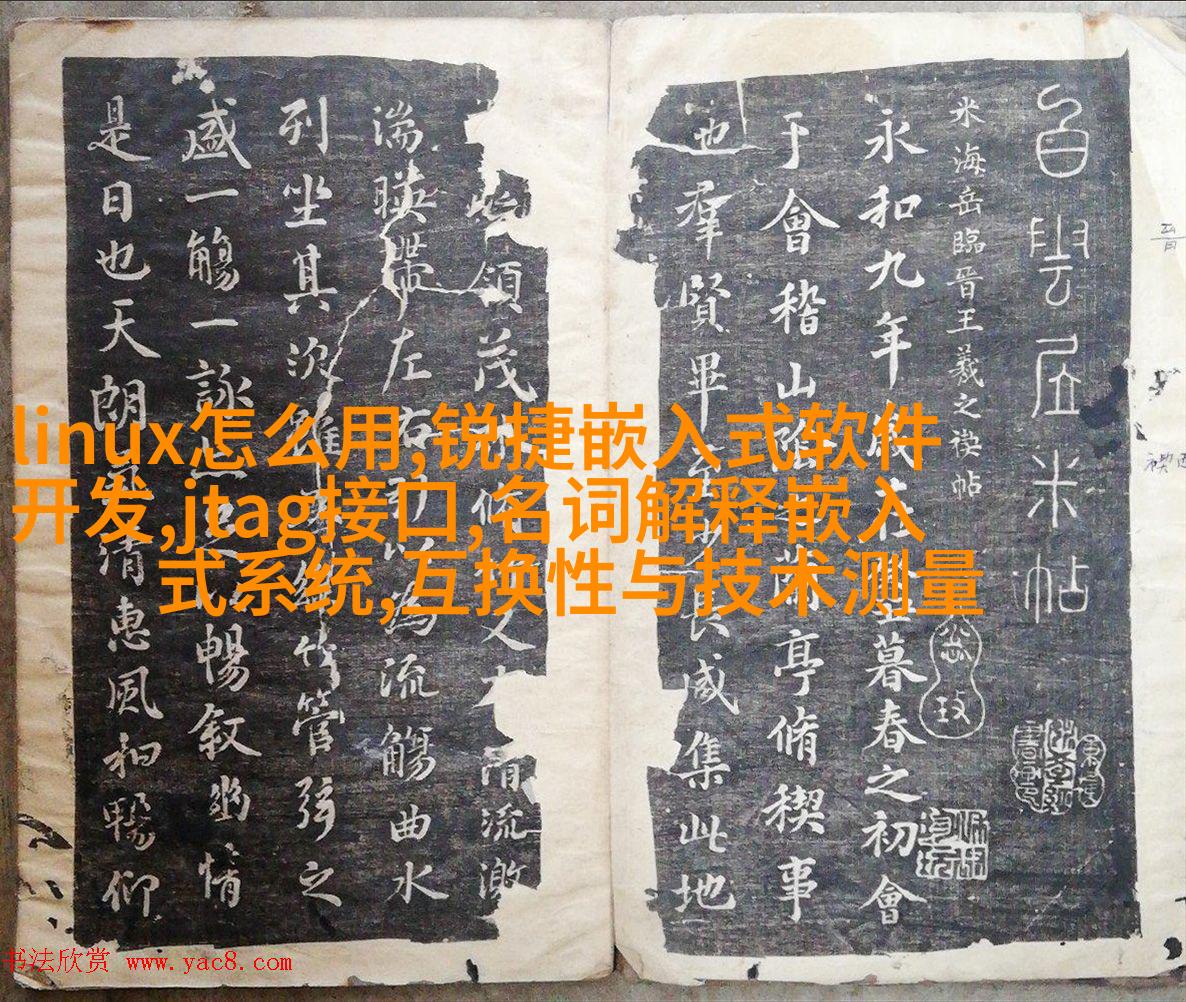 白雲居米帖
米海岳臨晉王羲之禊帖
永和九年歲在丑暮春之初會
于會稽山陰之蘭亭脩禊事
也羣賢畢至少長咸集此地
領茂林脩又有清流激
湍暎帶左右引以為流觴曲水
列坐其次雖無絲竹管弦之
盛一觴一詠足以暢敘幽情
是日也天朗氣清惠風和暢仰
linux怎么用,锐捷嵌入式软件
开发,jtag接口,名词解释嵌入
式系统,互换性与技术测量
书法欣赏 www.yac8.com